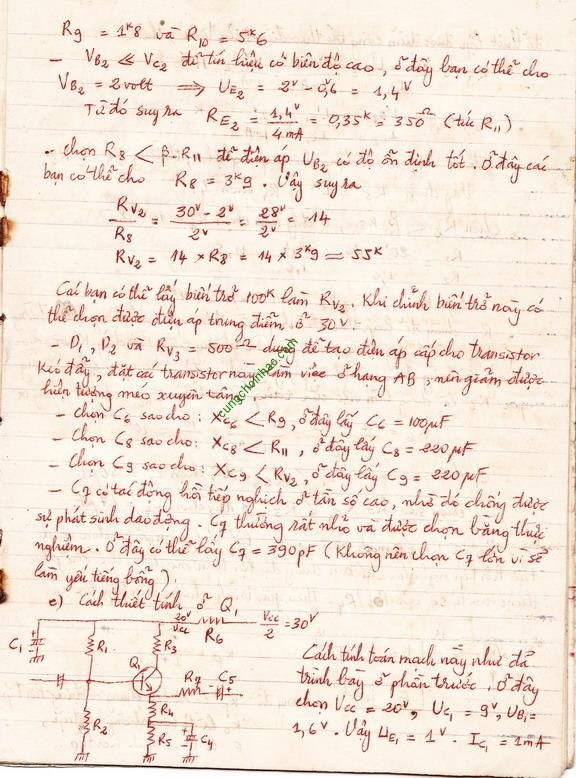 R9 = 1ᴷ8 và R10 = 5ᴷ6
- VB2 << VC2 để tín hiệu có biên độ cao, ở đây bạn có thể cho
VB2 = 2 volt ⟹ UE2 = 2ᵛ - 0,6 = 1,4ᵛ
Từ đó suy ra RE2 = 1,4ᵛ / 4mA = 0,35ᴷ = 350Ω (tức R11)
- chọn R8 < β.R11 để điện áp UB2 có độ ổn định tốt. Ở đây các
bạn có thể cho R8 = 3ᴷ9. Vậy suy ra
RV2 / R8 = 30ᵛ - 2ᵛ / 2ᵛ = 28ᵛ / 2ᵛ = 14
RV2 = 14 × R8 = 14 × 3ᴷ9 ≈ 55ᴷ
Các bạn có thể lấy biến trở 100ᴷ làm RV2. Khi chỉnh biến trở này có
thể chọn được điện áp trung điểm ở 30ᵛ
- D1, D2 và RV3 = 500Ω dùng để tạo điện áp cấp cho transistor
kéo đẩy, đặt các transistor này làm việc ở hạng AB, nên giảm được
hiện tượng méo xuyên tâm.
cungchoinhao.com
- chọn C6 sao cho: XC6 < R9, ở đây lấy C6 = 100µF
- Chọn C8 sao cho: XC8 < R11, ở đây lấy C8 = 220µF
- Chọn C9 sao cho: XC9 < RV2, ở đây lấy C9 = 220µF
- C7 có tác động hồi tiếp nghịch ở tần số cao, nhờ đó chống được
sự phát sinh dao động. C7 thường rất nhỏ và được chọn bằng thực
nghiệm. Ở đây có thể lấy C7 = 390pF (Không nên chọn C7 lớn vì sẽ
làm yếu tiếng bổng).
e) Cách thiết tính ở Q1
C1
R1
R3
20ᵛ
VCC
R6
VCC / 2 = 30ᵛ
Q1
R7
C5
R2
R4
R5
C4
Cách tính toán mạch này như đã
trình bày ở phần trước. Ở đây
chọn VCC = 20ᵛ, UC1 = 9ᵛ, UB1 =
1,6ᵛ. Vậy UE1 = 1ᵛ. IC1 = 1mA